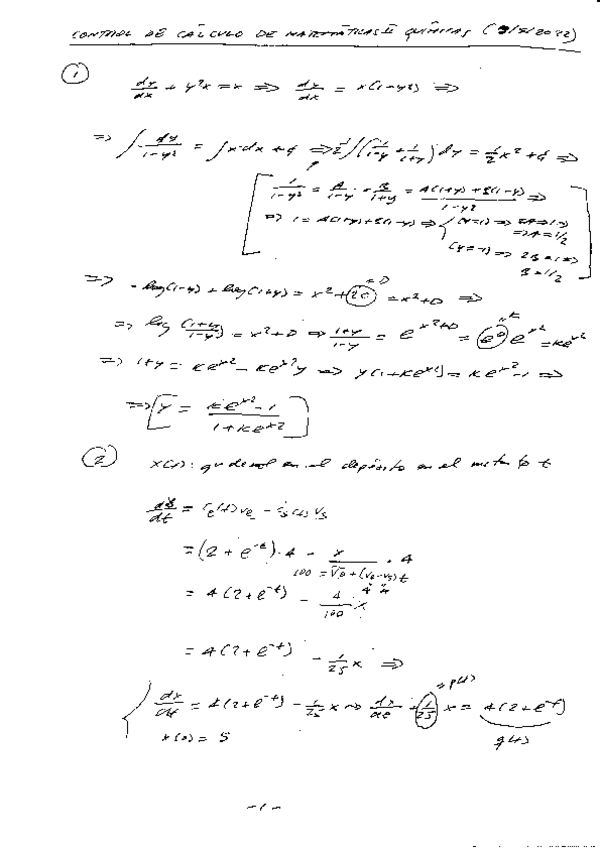 CONTROL DE CÁLCULO DE MATEMÁTICAS II QUÍMICAS (9/5/2022)
①
dy/dx + y²x = x => dy/dx = x(1-y²) =>
=> ∫ dy/1-y² = ∫x dx + G => 1/2 ∫(1/1-y + 1/1+y) dy = 1/2 x² + G =>
[ 1/1-y² = A/1-y + B/1+y = A(1+y)+B(1-y)/1-y² =>
=> 1 = A(1+y)+B(1-y) => { (y=1) => 2A=1 => => A=1/2
(y=-1) => 2B=1 => B=1/2 ]
=> -log(1-y) + log(1+y) = x² + 2G = x²+D =>
=> log (1+y/1-y) = x²+D => 1+y/1-y = e^x²+D = e^D e^x² = ke^x²
=> 1+y = ke^x² - ke^x² y => y(1+ke^x²) = ke^x² - 1 =>
=> [ y = ke^x² - 1 / 1+ke^x² ]
② x(t): en el depósito en el t
dx/dt = Ce(t)ve - Cs(t)vs
= (2+e^-t)·4 - x/100 = V0+(ve-vs)t · 4
4 4
= 4(2+e^-t) - 4/100 x
= 4(2+e^-t) - 1/25 x =>
{ dx/dt = 4(2+e^-t) - 1/25 x => dx/dt + 1/25 x = 4(2+e^-t)
= p(t)
x(0) = 5
q(t)
-1-